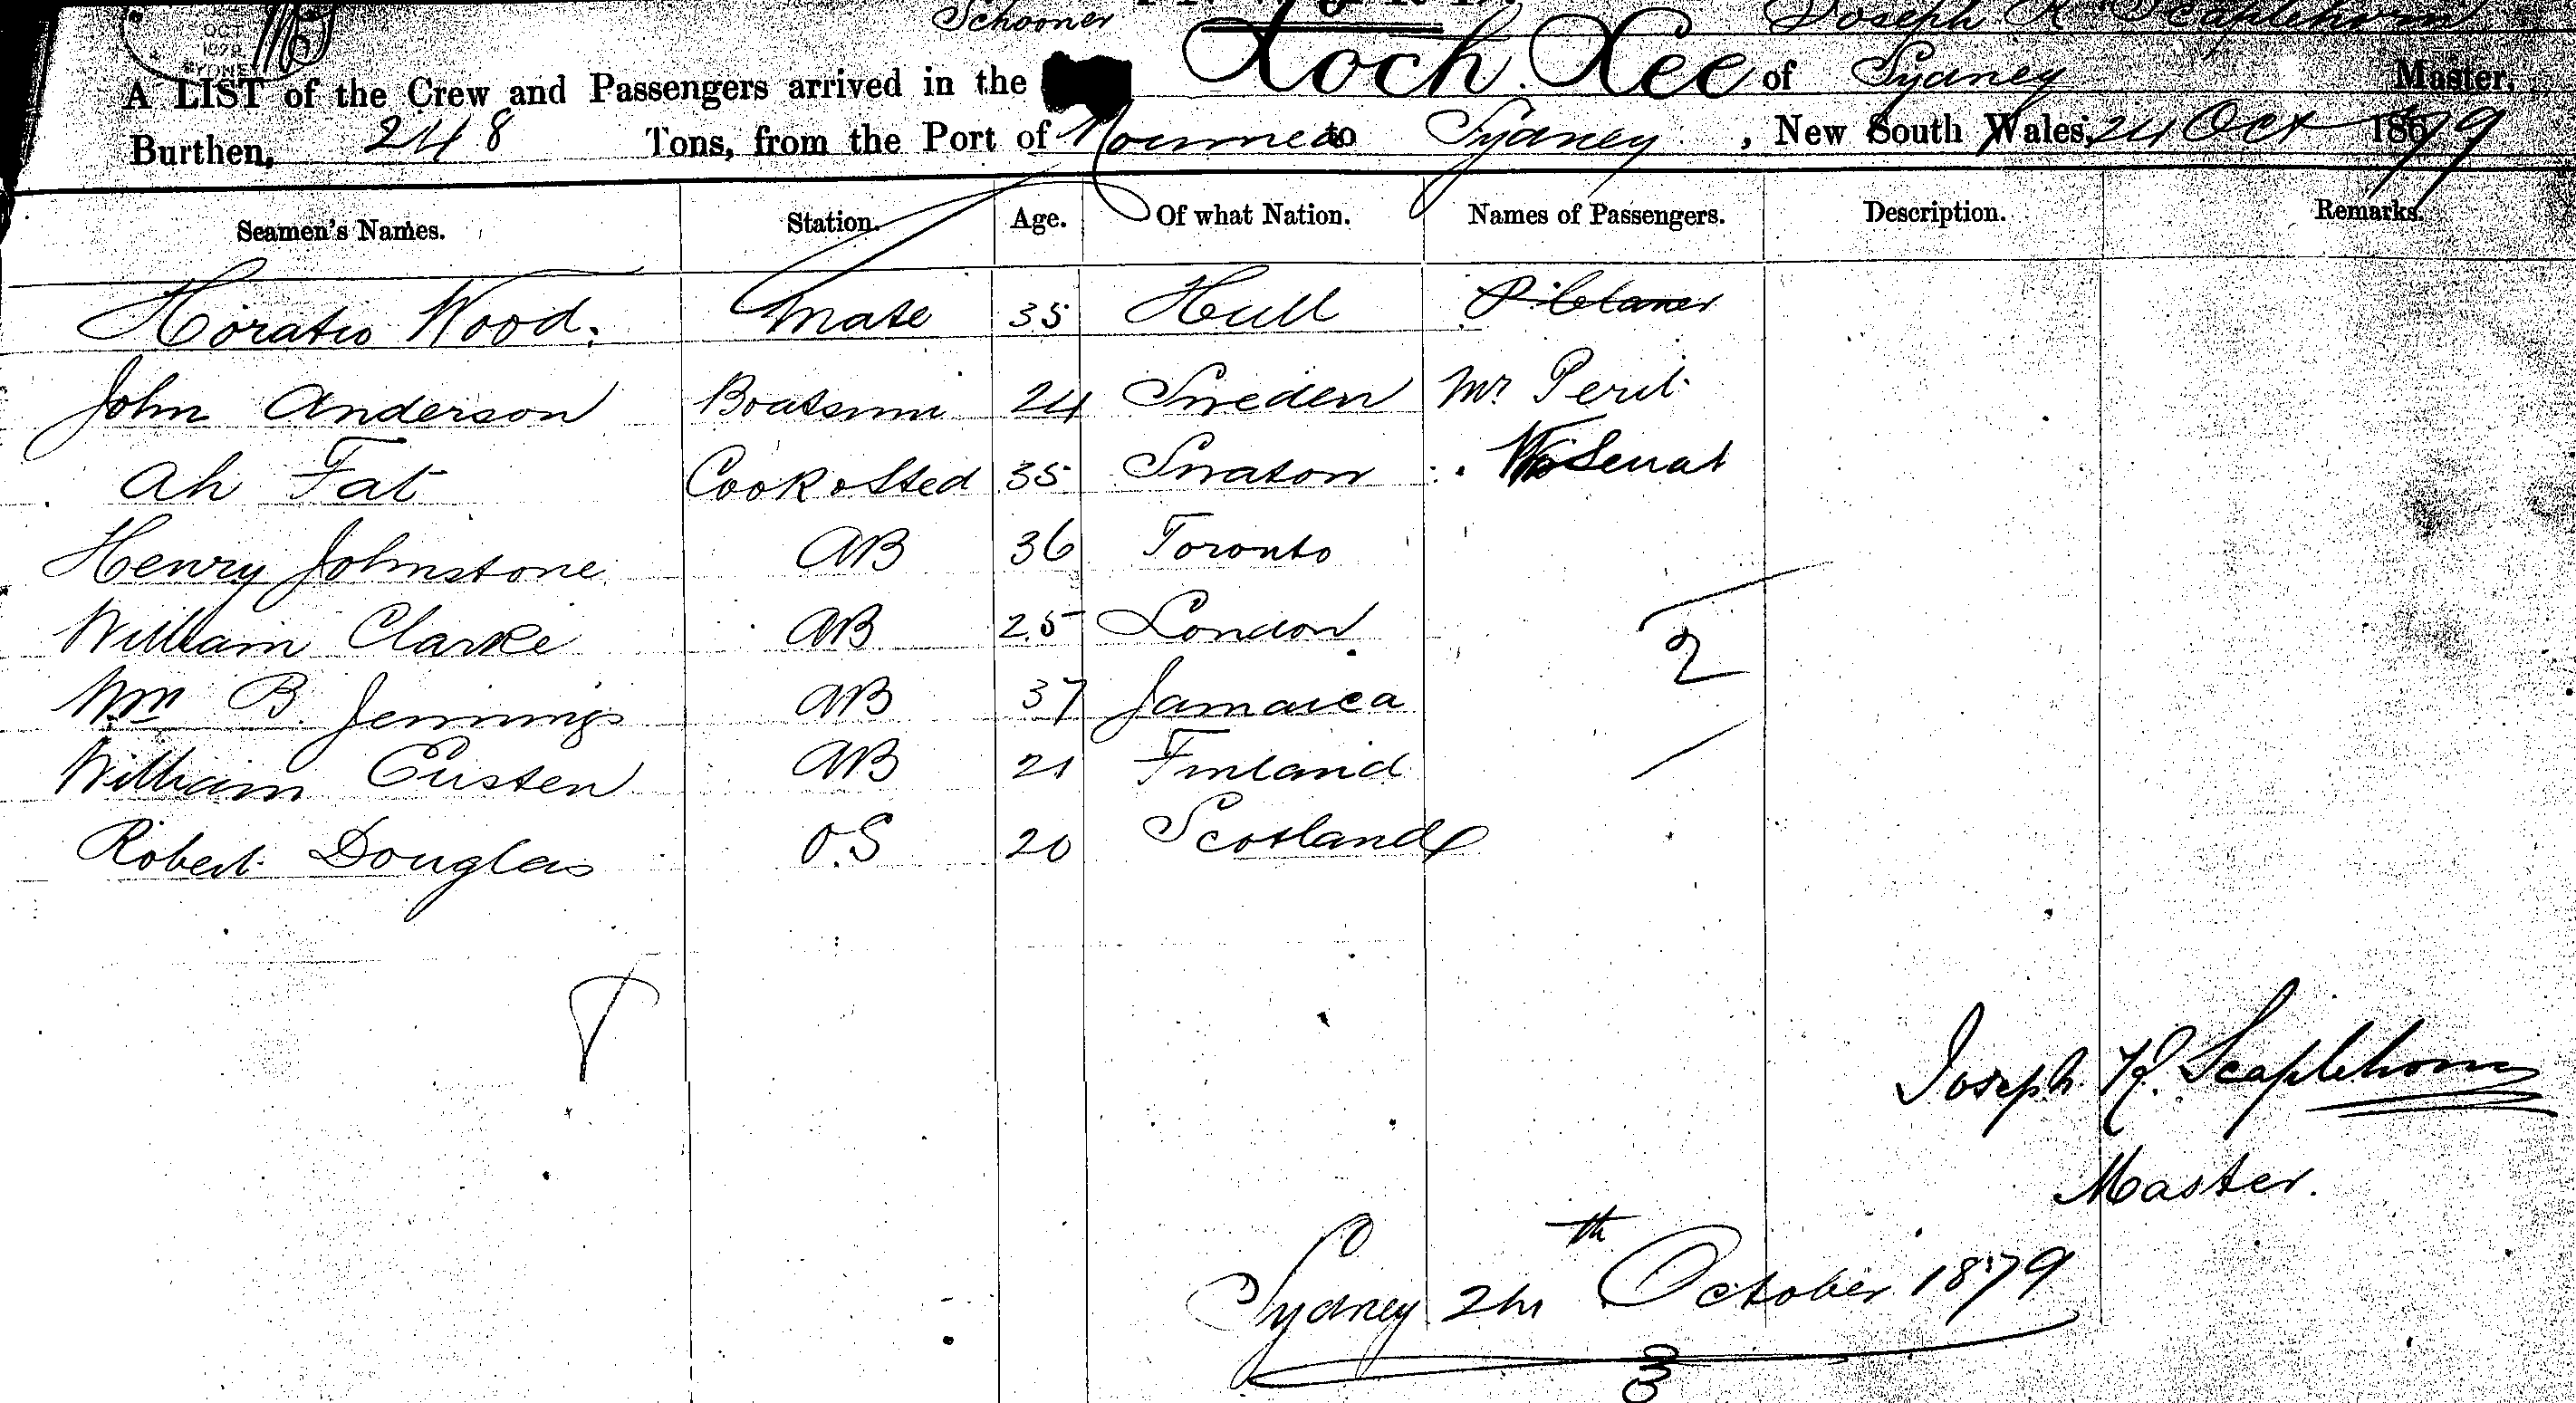 OCT
1879
SYDNEY
Schooner
Joseph R Scaplehorn
A LIST of the Crew and Passengers arrived in the Loch Lee of Sydney Master,
Burthen, 248 Tons, from the Port of Noumea to Sydney, New South Wales, 24 Oct 1879
Seamen's Names. Station. Age. Of what Nation. Names of Passengers. Description. Remarks.
Horatio Wood. Mate 35 Hull
John Anderson Boatsmn 24 Sweden Mr Peril
Ah Fat Cook & Sted 35 Swatow Senat
Henry Johnstone AB 36 Toronto
William Clarke AB 25 London
2
Wm B. Jennings AB 37 Jamaica
William Eusten AB 21 Finland
Robert Douglas O.S 20 Scotland
Joseph R. Scaplehorn
Master.
Sydney 24th October 1879